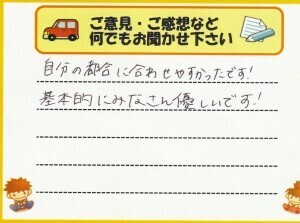 ご意見・ご感想など
何でもお聞かせ下さい
自分の都合に合わせやすかったです!
基本的にみなさん優しいです!